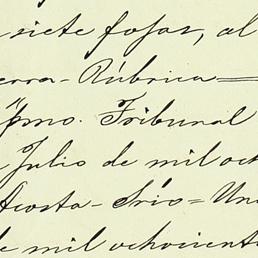 siete fojas, al
erra - Rúbrica =
pmo. Tribunal
Julio de mil och
Acosta - Srio = Un
de mil ochocient